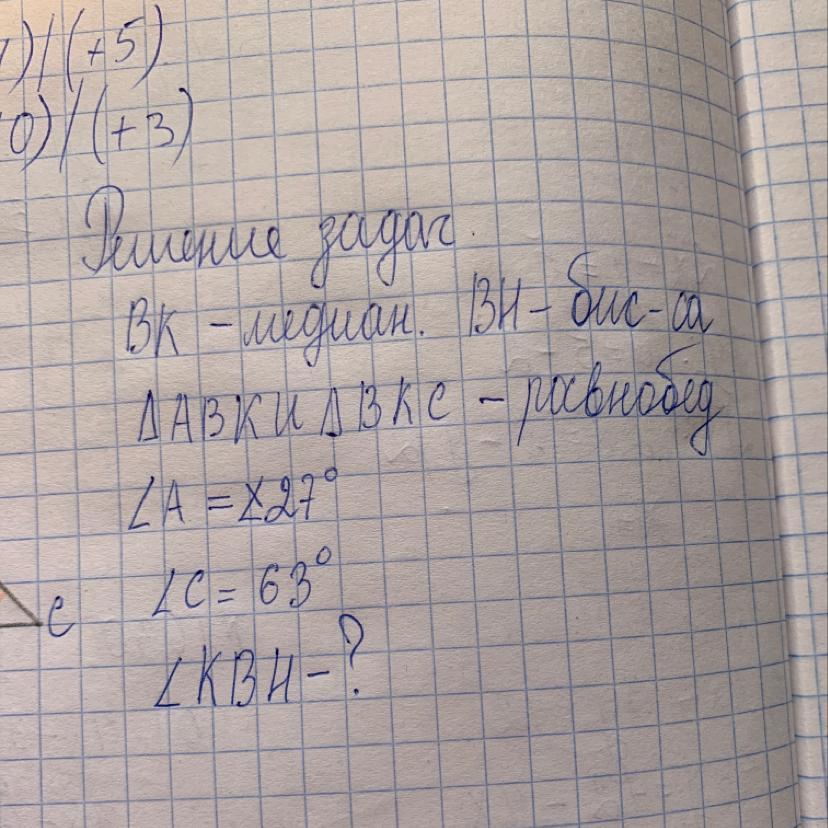 )/(+5)
0)/(+3)
Решение задач.
BK – медиан. BH – бис-са
ΔABK и ΔBKC – равнобед
∠A = 27°
C ∠C = 63°
∠KBH – ?